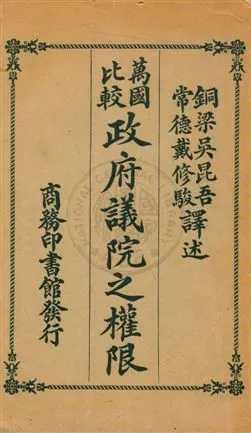 銅梁吳昆吾
常德戴修駿
譯述
萬國
比較
政府議院之權限
商務印書館發行